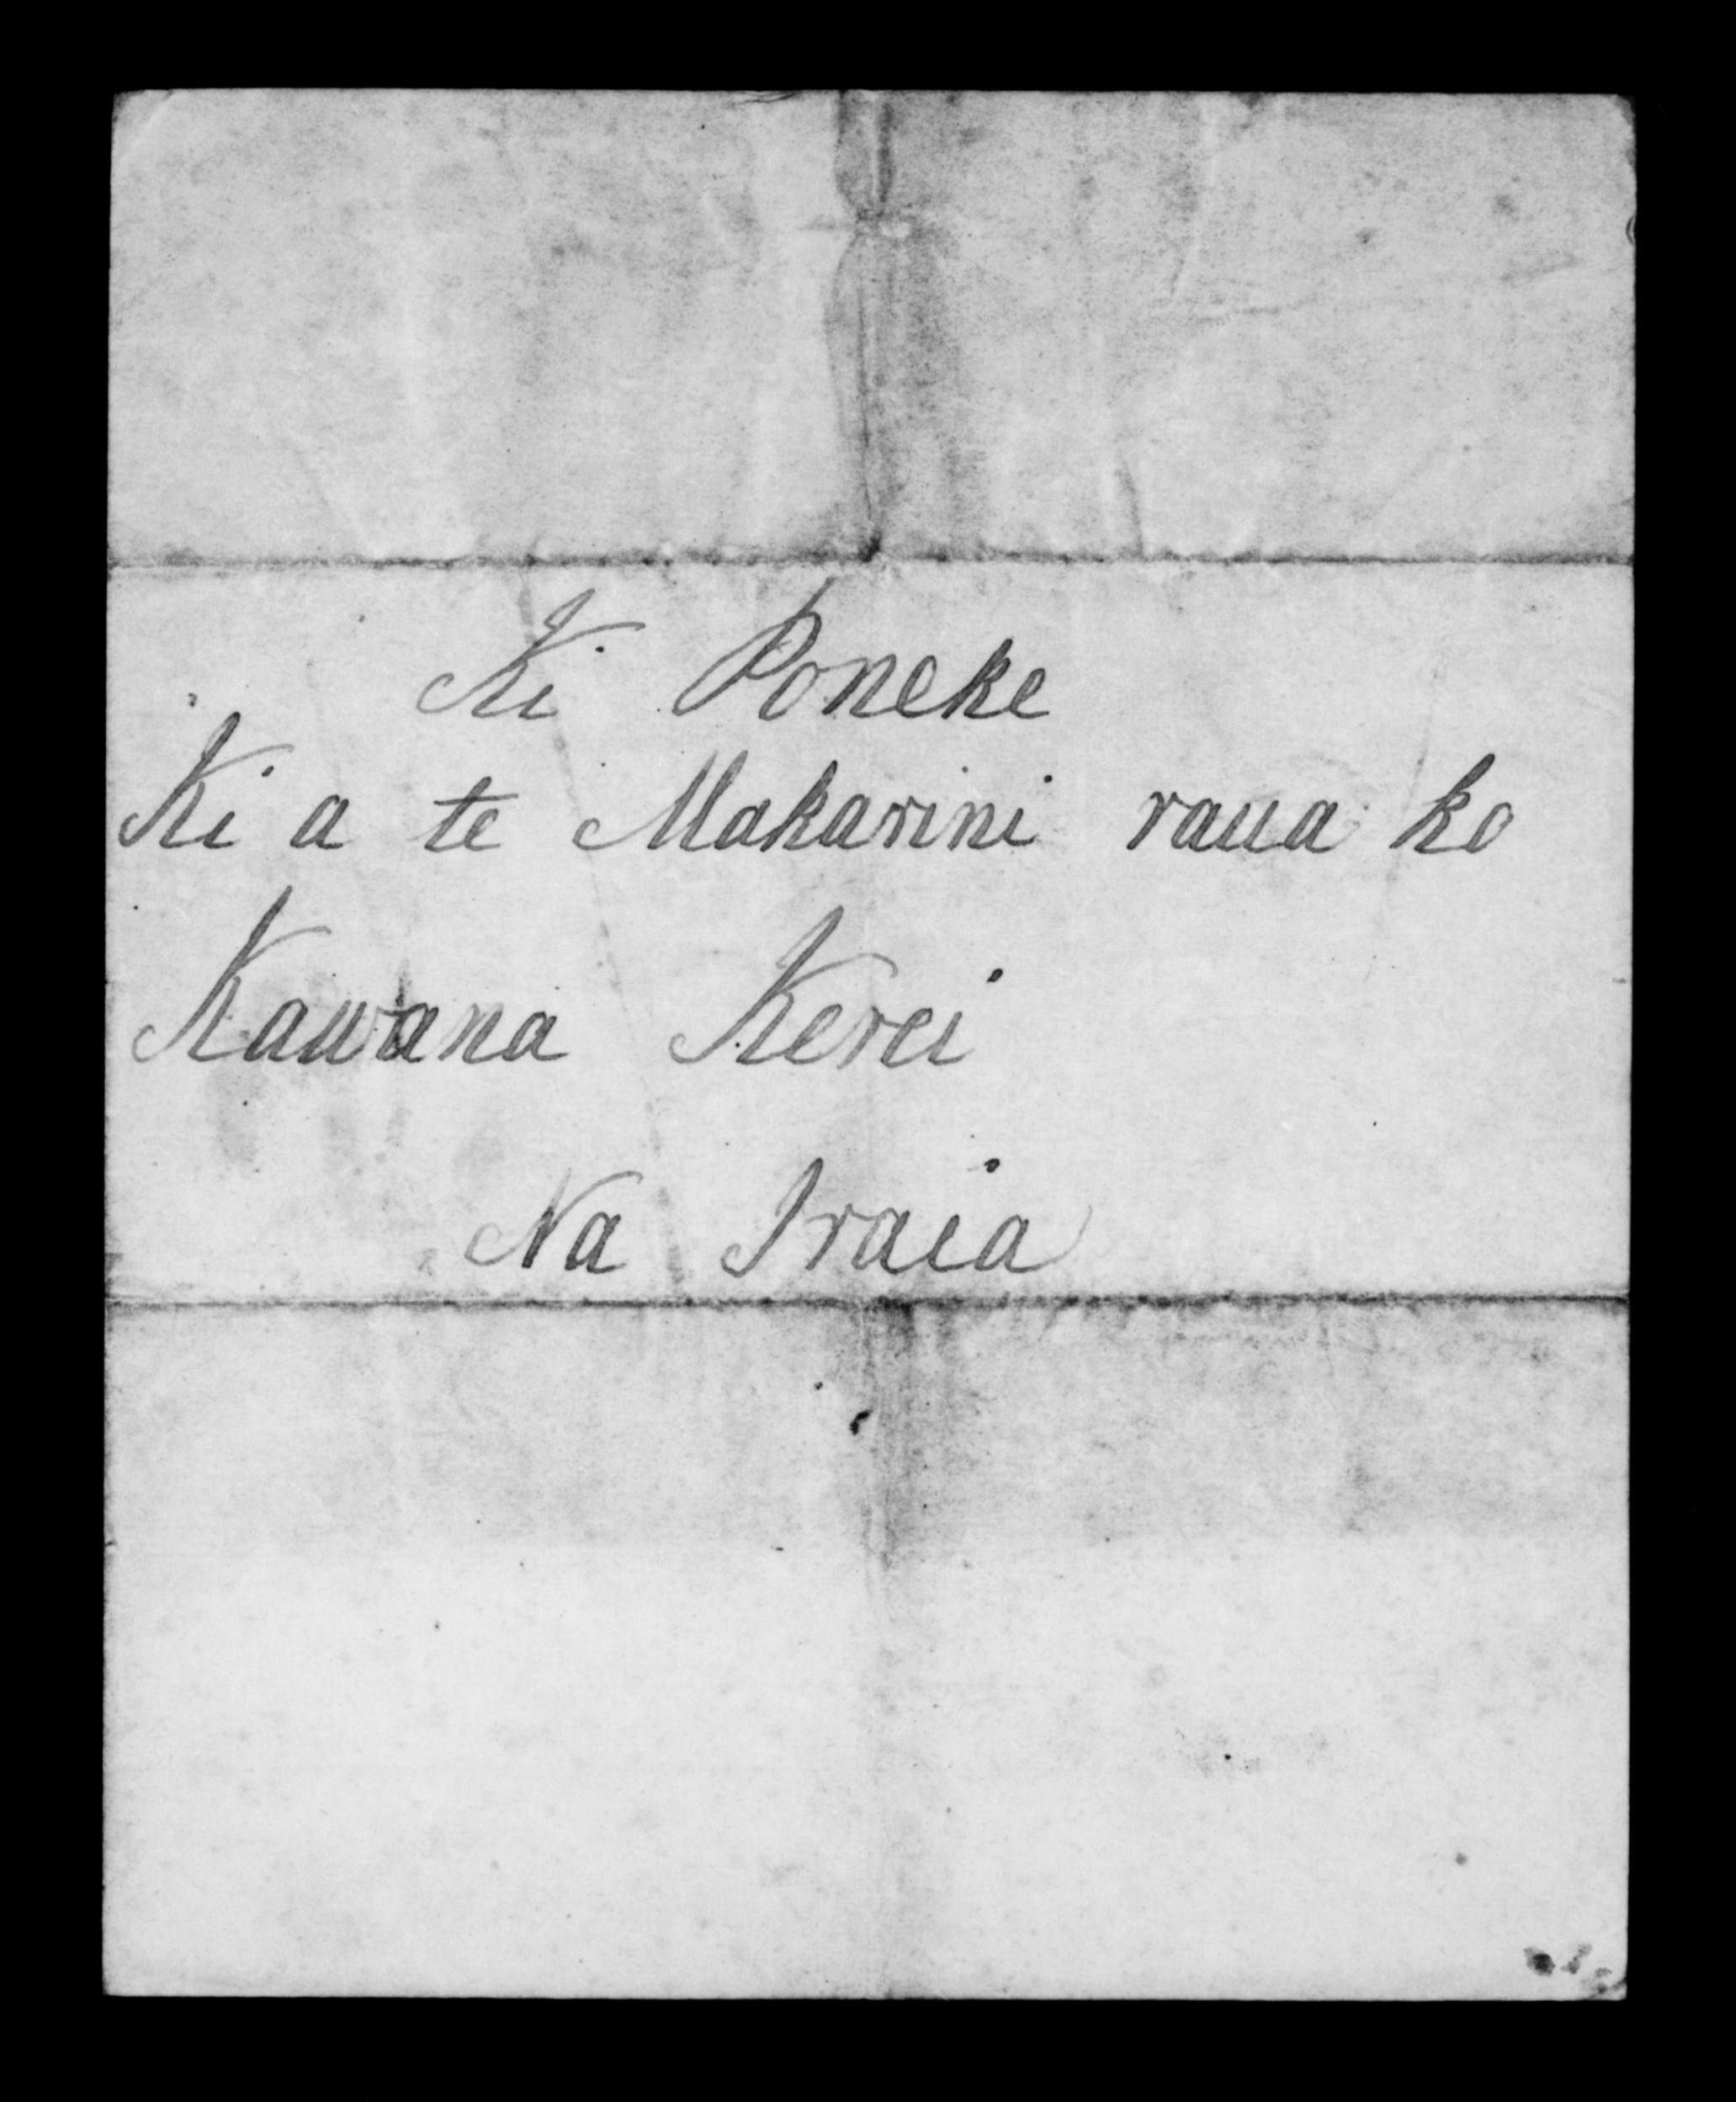 Ki Poneke
Ki a te Makarini raua ko
Kawana Kerei
Na Iraia